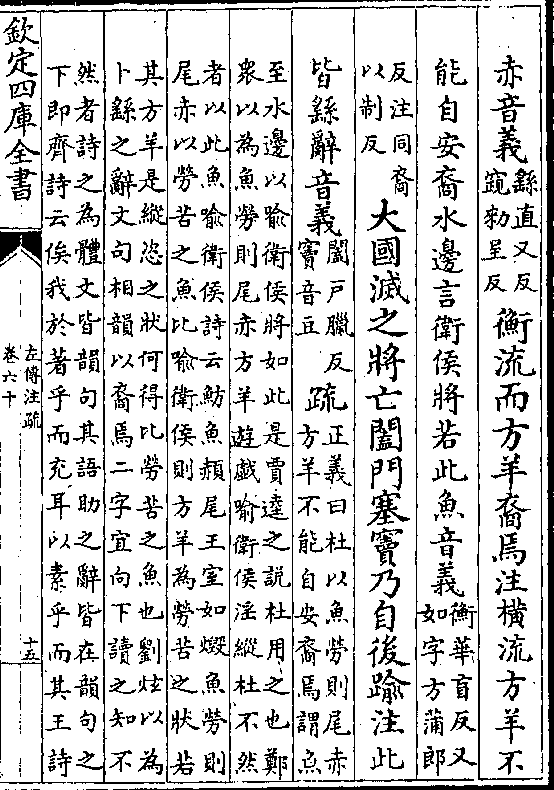 赤音義繇直又反窺勑呈反衡流而方羊裔焉注橫流方羊不
能自安裔水邊言衛侯將若此魚音義衡華盲反又如字方蒲郎
反注同裔以制反大國滅之將亡闔門塞竇乃自後踰注此
皆繇辭音義闔户臘反竇音豆疏正義曰杜以魚勞則尾赤方羊不能自安裔焉謂魚
至水邊以喻衛侯將如此是賈逵之説杜用之也鄭
衆以為魚勞則尾赤方羊遊戯喻衛侯淫縱杜不然
者以此魚喻衛侯詩云魴魚赬尾王室如燬魚勞則
尾赤以勞苦之魚比喻衛侯則方羊為勞苦之狀若
其方羊是縱恣之狀何得比勞苦之魚也劉炫以為
卜繇之辭文句相韻以裔焉二字宜向下讀之知不
然者詩之為體文皆韻句其語助之辭皆在韻句之
下即齊詩云俟我於著乎而充耳以素乎而其王詩
欽定四庫全書
左傳注疏
卷六十
十五